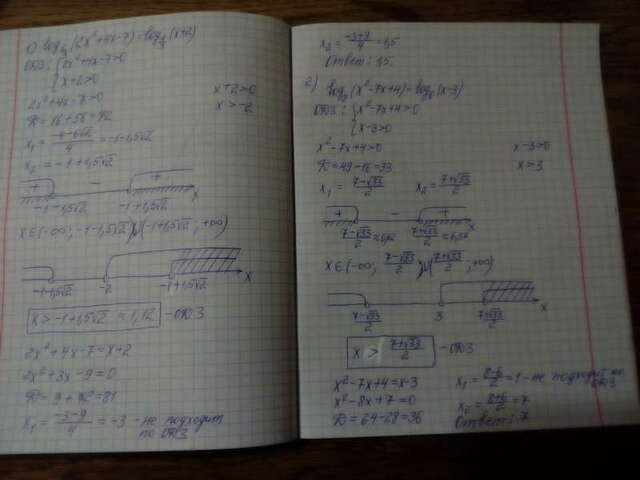 1) log½(2x²+4x-7)=log½(x+2)
ОДЗ: {2x²+4x-7>0
{x+2>0
2x²+4x-7>0
x+2>0
D=16+56=72
x>-2
x₁= (-4-6√2)/4 =-1-1,5√2
x₂=-1+1,5√2
+ - + x
-1-1,5√2 -1+1,5√2
x∈(-∞; -1-1,5√2)∪(-1+1,5√2; +∞)
-1-1,5√2 -2 -1+1,5√2 x
x>-1+1,5√2 ≈1,12 -ОДЗ
2x²+4x-7=x+2
2x²+3x-9=0
D=9+72=81
x₁= (-3-9)/4 =-3 - не подходит
по ОДЗ
x₂= (-3+9)/4 =1,5
Ответ: 1,5.
2) (x²-7x+4)=log (x-3)
ОДЗ: {x²-7x+4>0
{x-3>0
x²-7x+4>0
x-3>0
D=49-16=33
x>3
x₁= (7-√33)/2 x₂= (7+√33)/2
+ - + x
(7-√33)/2 (7+√33)/2
x∈(-∞; (7-√33)/2)∪((7+√33)/2; +∞)
(7-√33)/2 3 (7+√33)/2 x
x > (7+√33)/2 -ОДЗ
x²-7x+4=x-3
x²-8x+7=0
D=64-28=36
x₁= (8-6)/2 =1-не подходит по
ОДЗ
x₂= (8+6)/2 =7
Ответ: 7